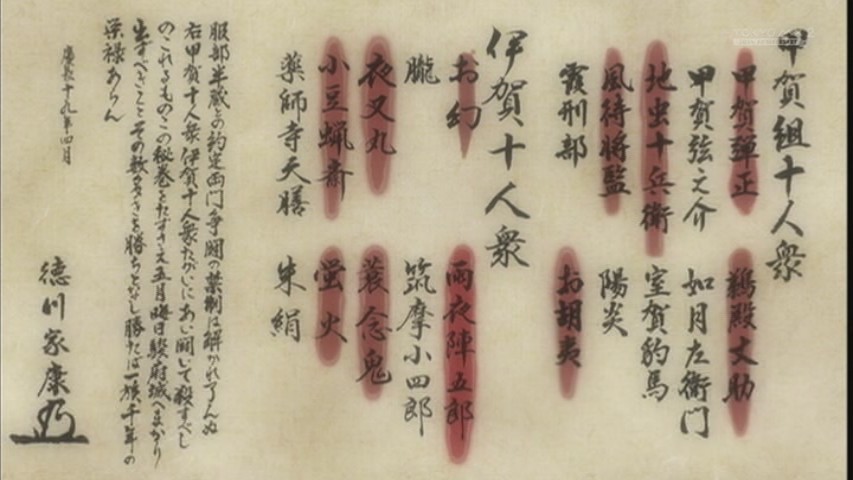 甲賀組十人衆
甲賀彈正　鵜殿丈助
甲賀弦之介　如月左衛門
地虫十兵衛　室賀豹馬
風待将監　陽炎
霞刑部　お胡夷
伊賀十人衆
お幻　雨夜陣五郎
朧　筑摩小四郎
夜叉丸　蓑念鬼
小豆蝋斎　蛍火
薬師寺天膳　朱絹
服部半蔵との約定両門争闘の禁制は解かれ了んぬ
右甲賀十人衆伊賀十人衆たがいにあい闘いて殺すべし
のこれるものこの秘巻をたずさえ五月晦日駿府城へまかり
出ずべきことその数多きを勝ちとなし勝たば一族千年の
栄禄あらん
慶長十九年四月
徳川家康